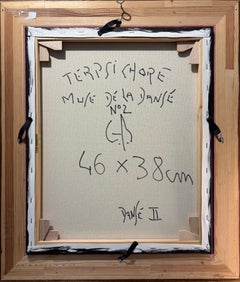 TERPSICHORE
MUSE DE LA DANSE
N°2
46 x 38 cm
DANSE II